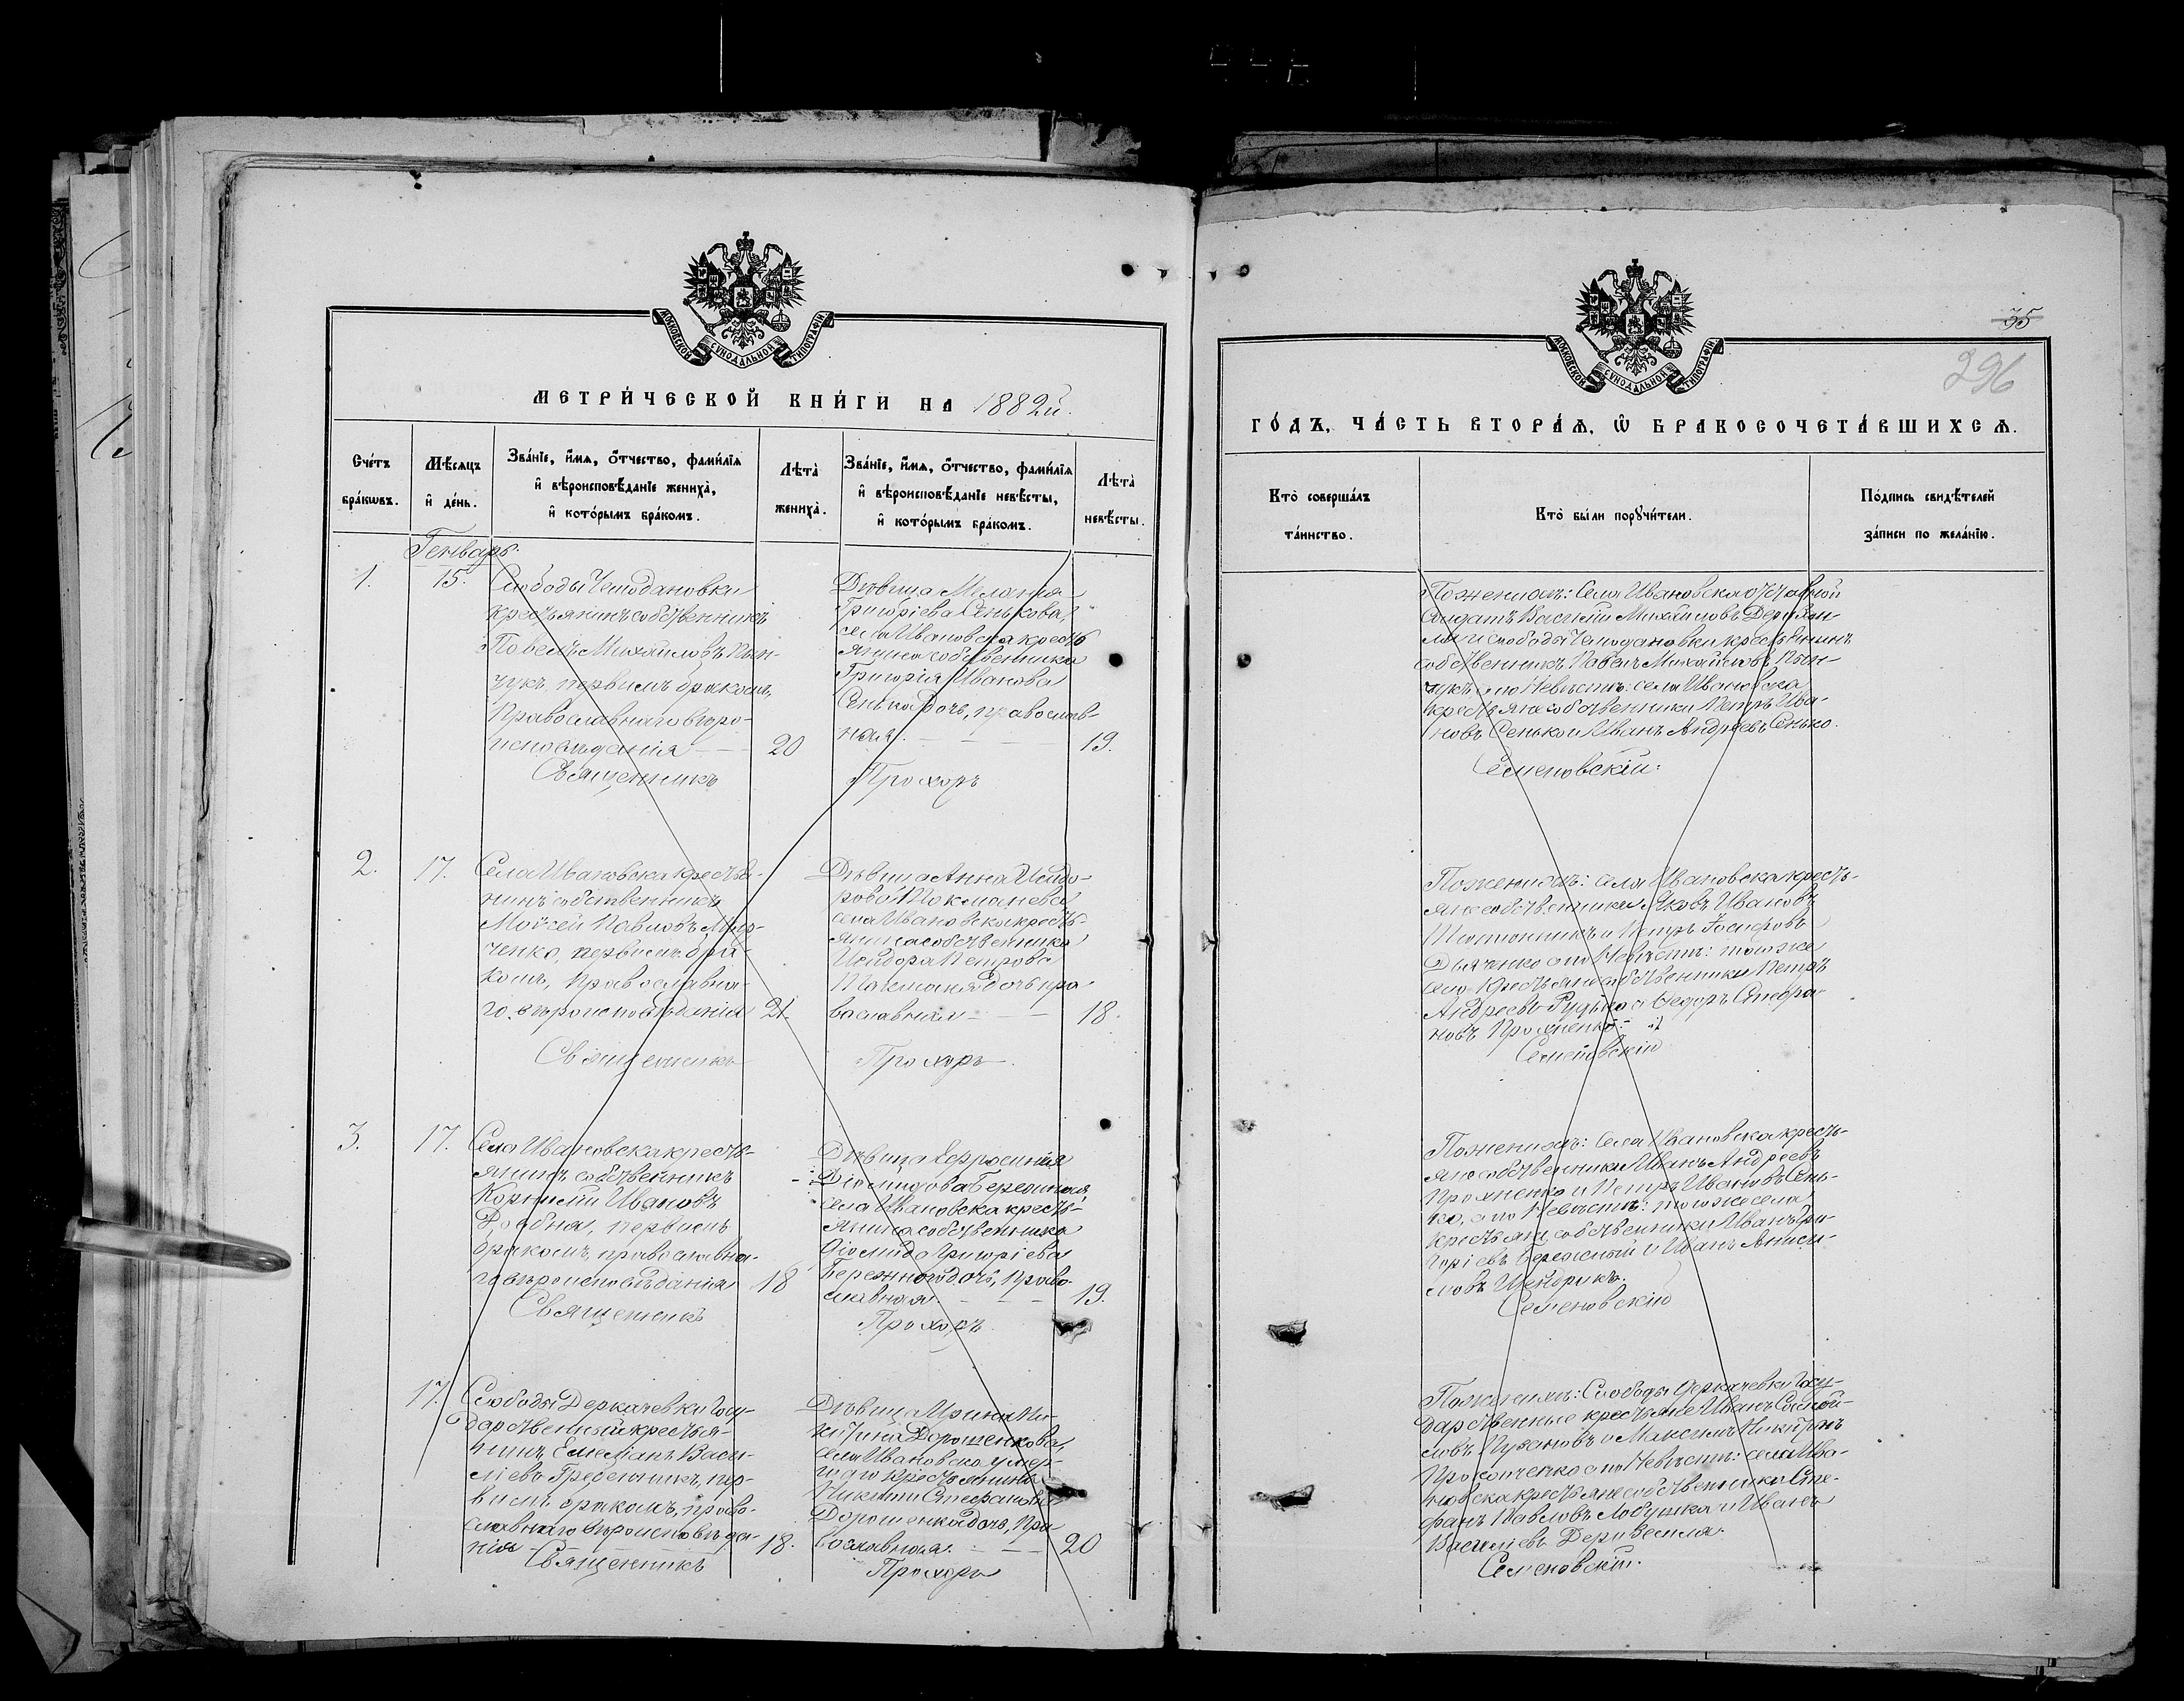 МОСКОВСКОЙ СѴНОДАЛЬНОЙ ТИПОГРАФІИ
МЕТРИ́ЧЕСКОЙ КНИ́ГИ НА 1882й.
Сче́тъ бра́кѡвъ.
Мѣ́сяцъ и҆ де́нь.
Зва́нїе, и҆́мѧ, ѻ҆́тчество, фами́лїѧ и҆ вѣроисповѣ́данїе жениха̀, и҆ кото́рымъ бра́комъ.
Лѣта̀ жениха̀.
Зва́нїе, и҆́мѧ, ѻ҆́тчество, фами́лїѧ и҆ вѣроисповѣ́данїе невѣ́сты, и҆ кото́рымъ бра́комъ.
Лѣта̀ невѣ́сты.
Генварь.
1.
15.
Слободы Чемодановки
крестьянинъ собственникъ
Павелъ Михайловъ
первымъ бракомъ,
Православнаго вѣро-
исповѣданія
20
Дѣвица Меланія
Григоріева Сенькова,
села Ивановска кресть
янина собственника
Григорія Иванова
Сенька дочь, православ-
ная.
19.
Священникъ
Прохоръ
2.
17.
Села Ивановска крестья-
нинъ собственникъ
Моѵсей Павловъ
ченко, первымъ бра-
комъ, Православна-
го вѣроисповѣданія
21.
Дѣвица Анна Исидо-
рова
села Ивановска кресть-
янина собственника
Исидора Петрова
дочь пра
вославная
18.
Священникъ
Прохоръ.
3.
17.
Села Ивановска кресть-
янинъ собственникъ
Корнилій Ивановъ
первымъ
бракомъ, православна-
го вѣроисповѣданія
18
Дѣвица Евфросинія
Діомидова Бережная,
села Ивановска кресть-
янина собственника
Діомида Григоріева
Бережного дочь, право-
славная.
19.
Священникъ
Прохоръ
17.
Слободы Деркачевки Госу-
дарственный крестья-
нинъ Емеліанъ Васи-
ліевъ Гребенникъ, пер-
вымъ бракомъ, право-
славнаго вѣроисповѣда-
нія
18.
Дѣвица Ирина Ни-
китина Дорошенкова,
села Ивановска умер-
шаго крестьянина
Никиты Стефанова
Дорошенка дочь, Пра
вославная.
20
Священникъ
Прохоръ
35
МОСКОВСКОЙ СѴНОДАЛЬНОЙ ТИПОГРАФІИ
296
ГО́ДЪ, ЧА́СТЬ ВТОРА́Ѧ, Ѽ БРАКОСОЧЕТА́ВШИХСѦ.
Кто̀ соверша́лъ та́инство.
Кто̀ бы́ли порꙋчи́тели.
По́дпись свидѣ́телей за́писи по жела́нїю.
По женихѣ: Села Ивановска отставной
Солдатъ Василій Михайловъ
и слободы Чемодановки крестьянинъ
собственникъ Павелъ Михайловъ
а по Невѣстѣ: села Ивановска
крестьяне собственники Петръ Ива-
новъ Сенько и Иванъ Андреевъ Сенько.
Семеновскій.
По женихѣ: села Ивановска кресть-
яне собственники Яковъ Ивановъ
и Петръ Іосифовъ
Дьяченко а по Невѣстѣ: того же
села крестьяне собственники Петръ
Андреевъ Рудько и Ѳедоръ Стефа-
новъ Прохненко.
Семеновскій
По женихѣ: Села Ивановска кресть-
яне собственники Иванъ Андреевъ
Прохненко и Петръ Ивановъ Сень-
ко, а по Невѣстѣ: того же села
крестьяне собственники Иванъ Гри-
горіевъ Бережный и Иванъ Аниси-
мовъ
Семеновскій
По женихѣ: Слободы Деркачевки Госу-
дарственные крестьяне Иванъ
Пузановъ и Максимъ Никитинъ
Прокопченко а по Невѣстѣ: села Ива-
новска крестьяне собственники Сте-
фанъ Павловъ Лобушка и Иванъ
Василіевъ
Семеновскій.